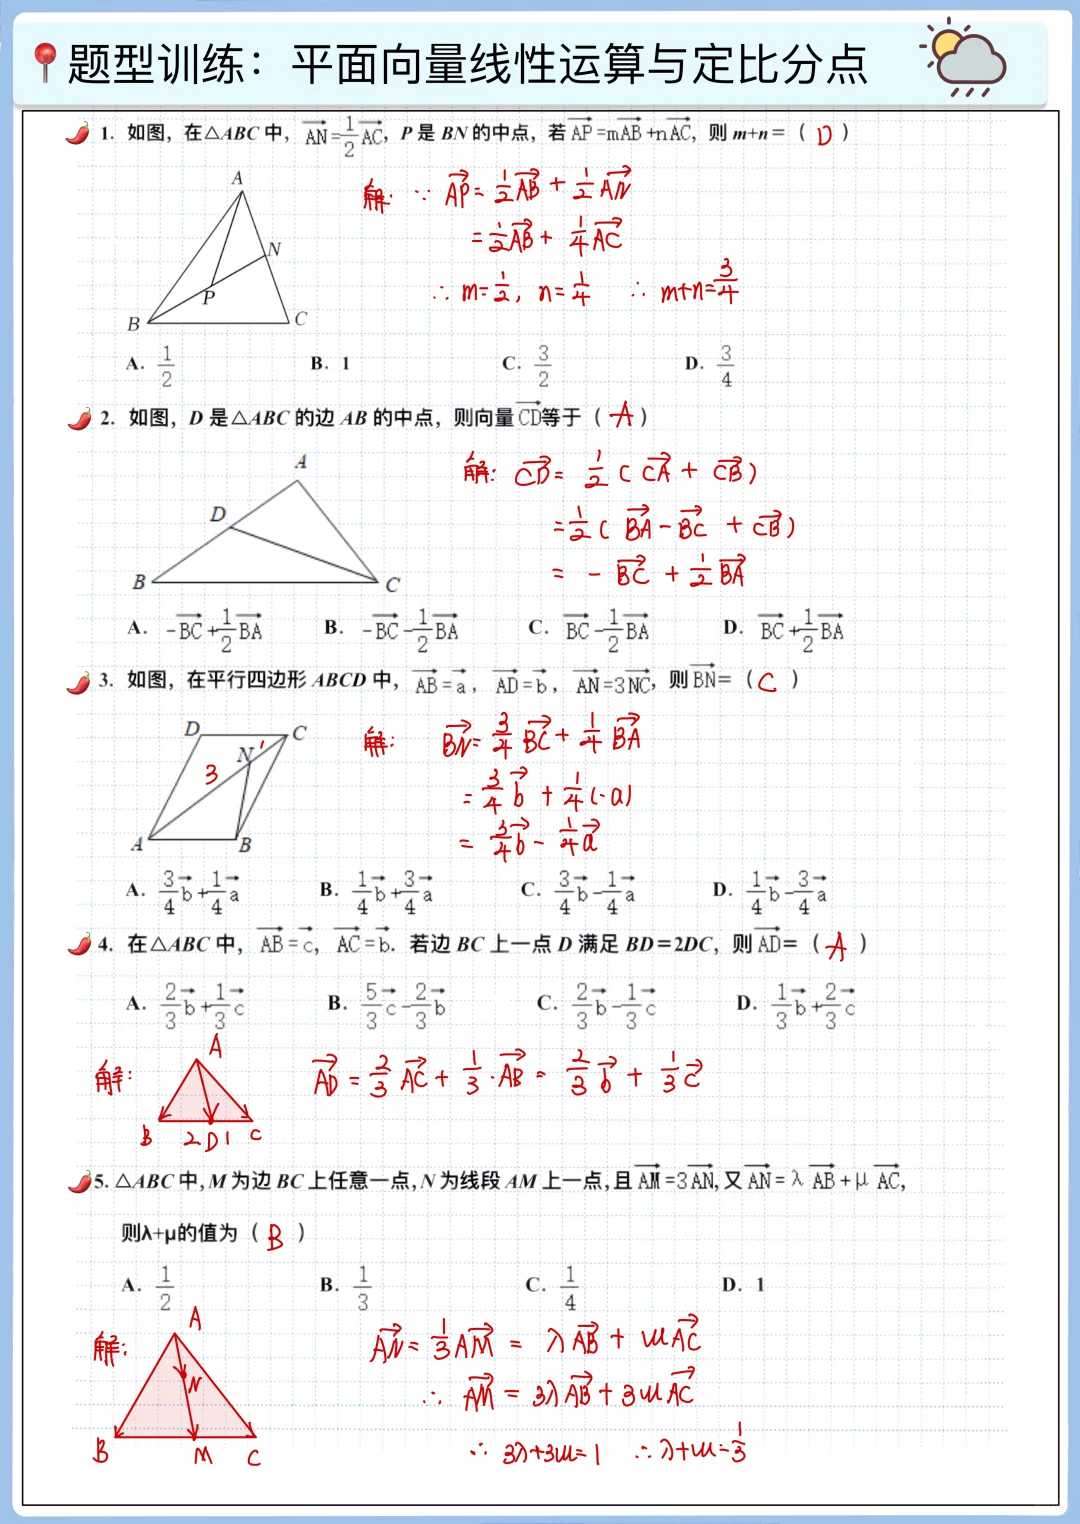 题型训练：平面向量线性运算与定比分点
1. 如图，在△ABC 中，AN=1/2AC，P 是 BN 的中点，若AP=mAB+nAC，则 m+n=（ D ）
A
N
P
B
C
解: ∵ AP=1/2AB+1/2AN
=1/2AB+1/4AC
∴m=1/2, n=1/4 ∴m+n=3/4
A. 1/2 B. 1 C. 3/2 D. 3/4
2. 如图，D 是△ABC 的边 AB 的中点，则向量CD等于（ A ）
A
D
B
C
解: CD=1/2(CA+CB)
=1/2(BA-BC+CB)
=-BC+1/2BA
A. -BC+1/2BA B. -BC-1/2BA C. BC-1/2BA D. BC+1/2BA
3. 如图，在平行四边形 ABCD 中，AB=a，AD=b，AN=3NC，则BN=（ C ）
D
C
N
1
3
A
B
解: BN=3/4BC+1/4BA
=3/4b+1/4(-a)
=3/4b-1/4a
A. 3/4b+1/4a B. 1/4b+3/4a C. 3/4b-1/4a D. 1/4b-3/4a
4. 在△ABC 中，AB=c，AC=b. 若边 BC 上一点 D 满足 BD=2DC，则AD=（ A ）
A. 2/3b+1/3c B. 5/3c-2/3b C. 2/3b-1/3c D. 1/3b+2/3c
A
解: AD=2/3AC+1/3·AB=2/3b+1/3c
B 2 D 1 C
5. △ABC 中, M 为边 BC 上任意一点, N 为线段 AM 上一点, 且AM=3AN, 又AN=λAB+μAC,
则λ+μ的值为（ B ）
A. 1/2 B. 1/3 C. 1/4 D. 1
A
解: AN=1/3AM=λAB+μAC
N
∴AM=3λAB+3μAC
B M C
∴3λ+3μ=1 ∴λ+μ=1/3